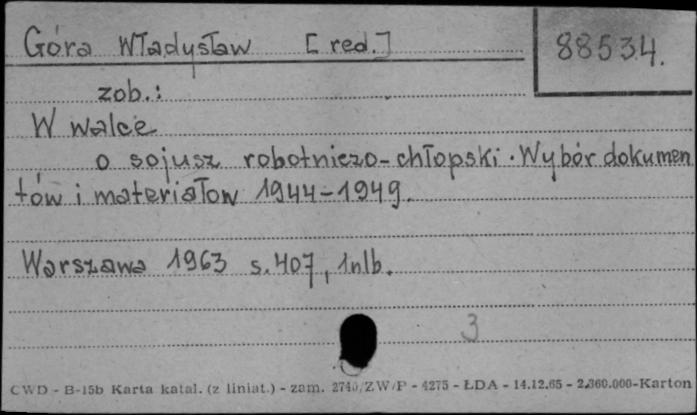 Góra Władysław [red.]
88534.
zob.:
W walce
o sojusz robotniczo-chłopski. Wybór dokumen
tów i materiałow 1944-1949.
Warszawa 1963 s. 407, 1nlb.
3
CWD - B-15b Karta katal. (z liniat.) - zam. 2740/ZW/P - 4275 - ŁDA - 14.12.65 - 2.360.000-Karton